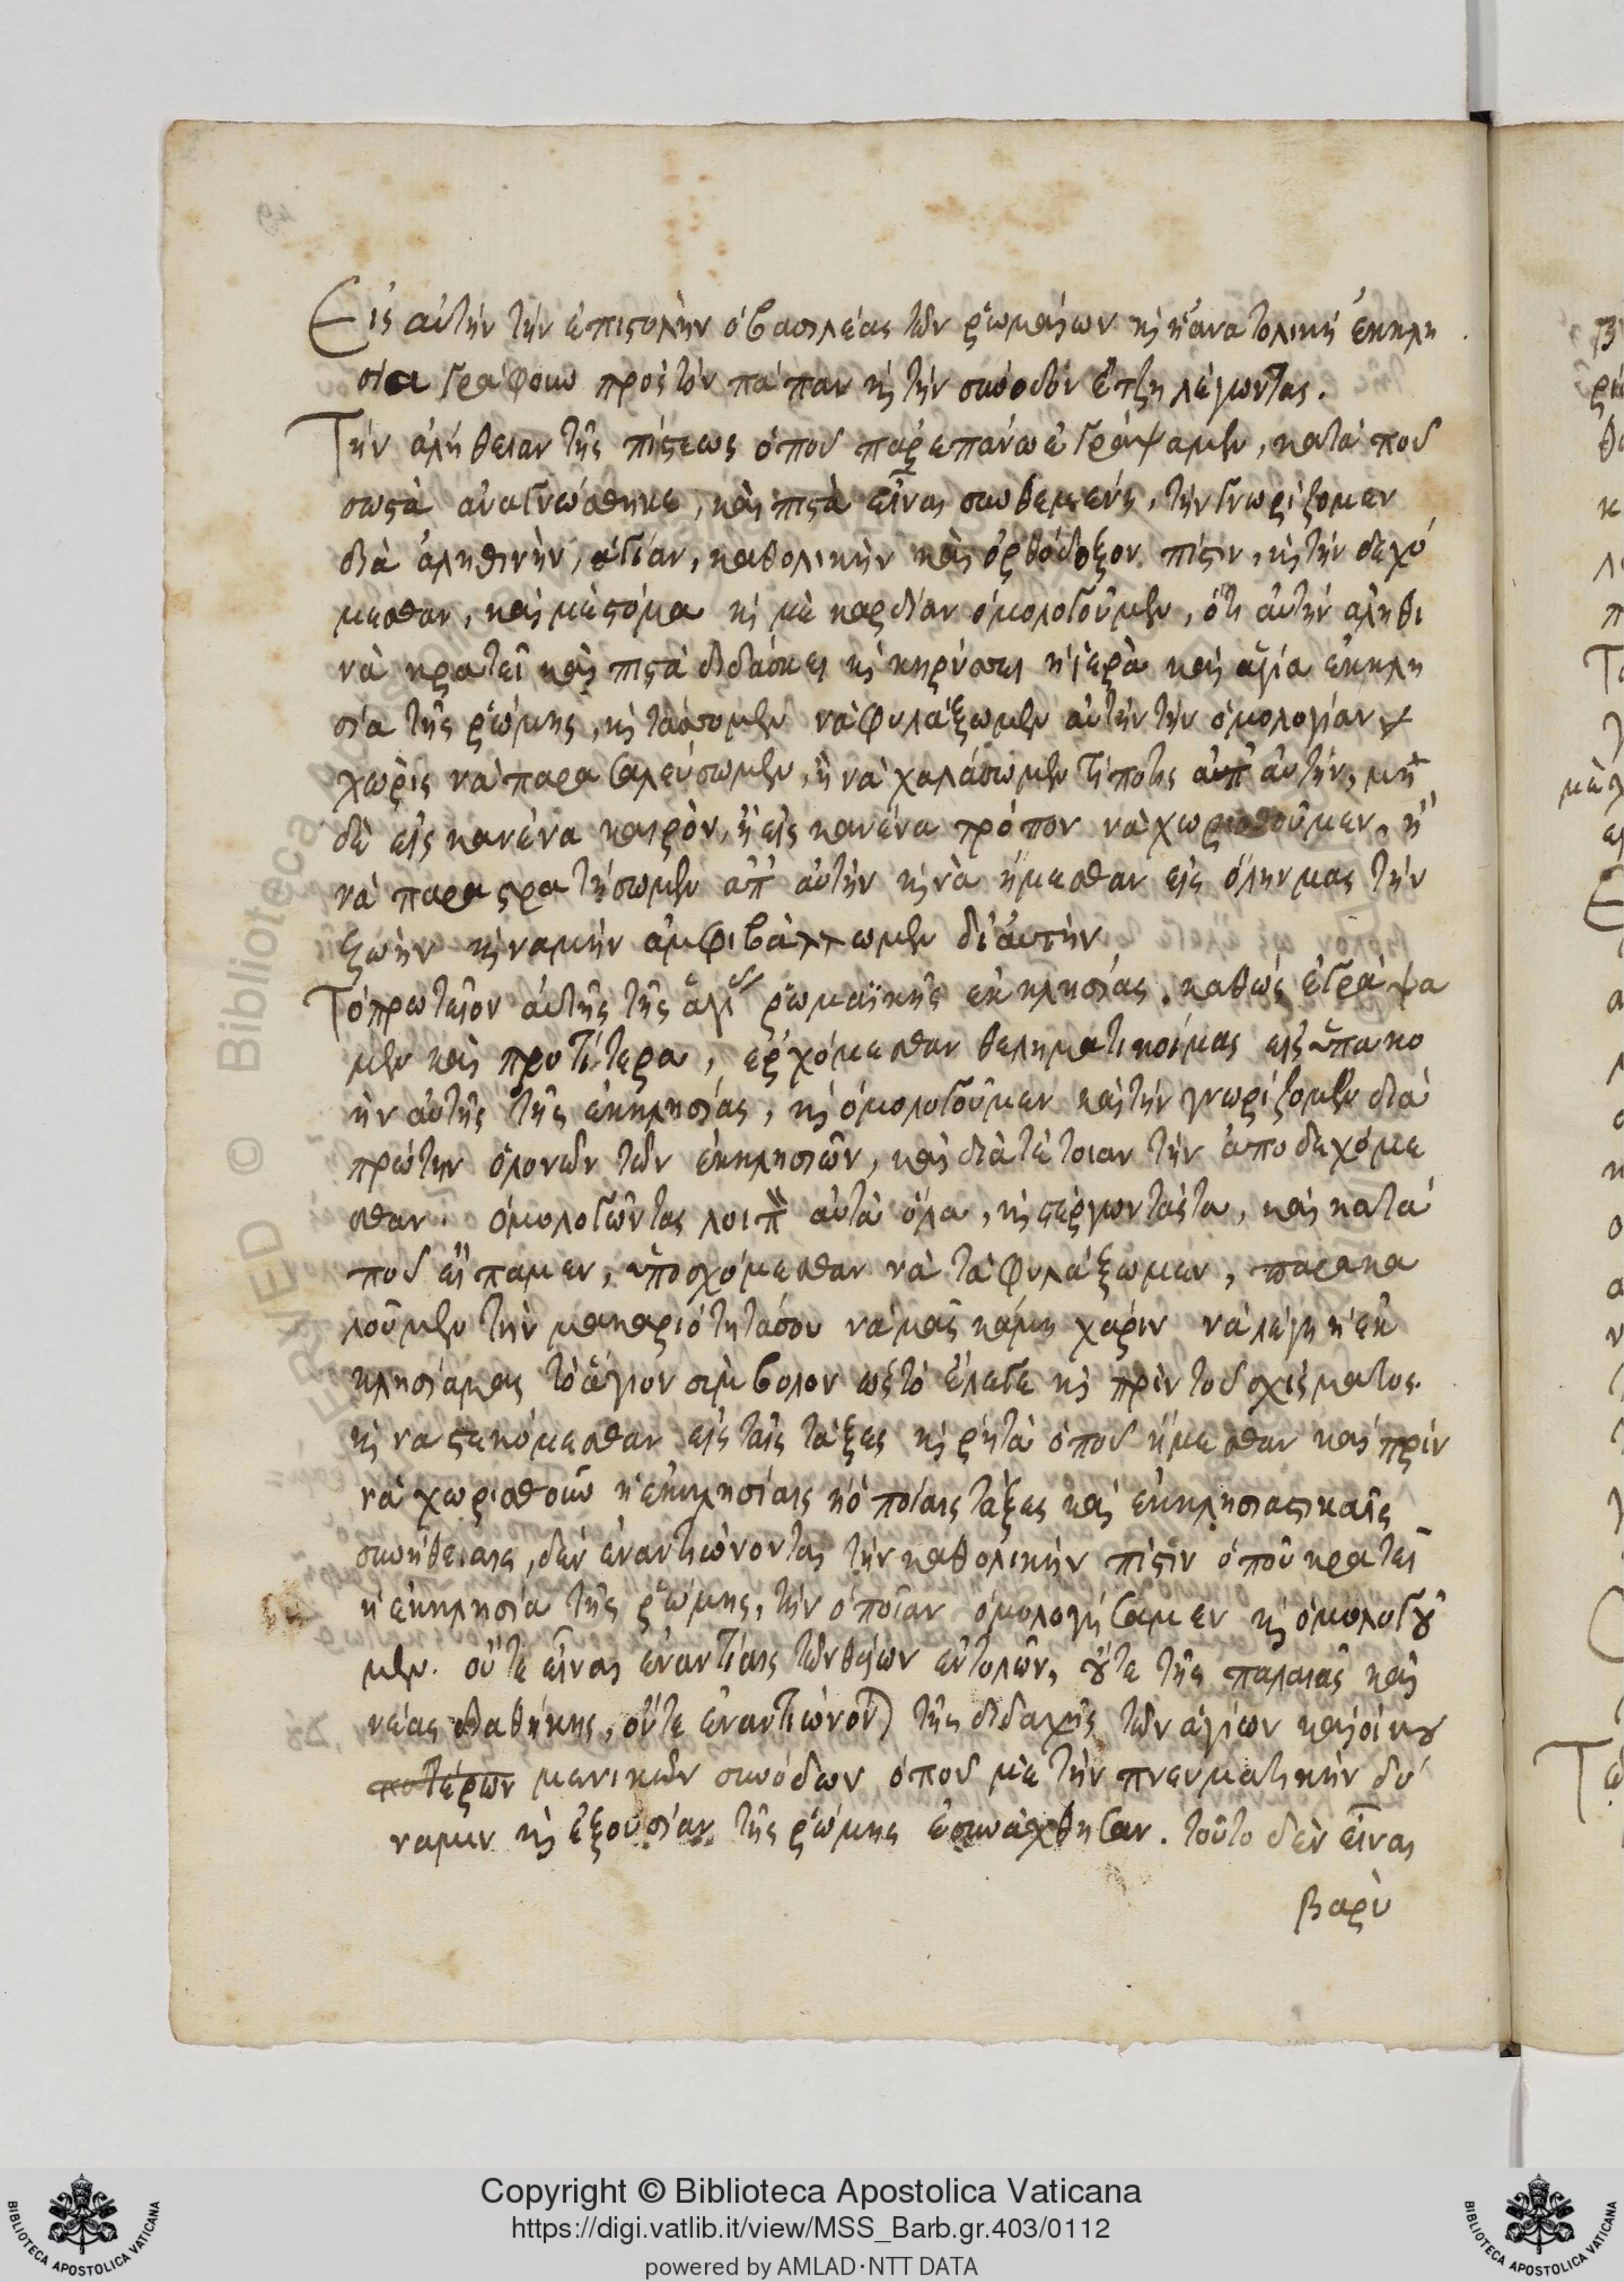 Εἰς αὐτὴν τὴν ἐπιστολὴν ὁ βασιλέας τῶν ῥωμαίων κὶ ἡ ἀνατολικὴ ἐκκλη
σία γράφουν πρὸς τὸν πάπαν κὶ τὴν σύνοδον ἔτζη λέγωντας.
Τὴν ἀλήθειαν τῆς πίστεως ὁποῦ παρεπάνω ἐγράψαμεν, κατὰ ποῦ
σωστὰ ἀναγνώσθηκε, καὶ πιστὰ εἶναι συνθεμένη, τὴν γνωρίζομεν
διὰ ἀληθινὴν, ἁγίαν, καθολικὴν καὶ ὀρθόδοξον πίστιν, κὶ τὴν δεχό
μεσθαν, καὶ μὲ στόμα κὶ μὲ καρδίαν ὁμολογοῦμεν, ὅτι αὐτὴν ἀληθι
νὰ κρατεῖ καὶ πιστὰ διδάσκει κὶ κηρύσσει ἡ ἱερὰ καὶ ἁγία ἐκκλη
σία τῆς ῥώμης, κὶ τάσσομεν νὰ φυλάξωμεν αὐτὴν τὴν ὁμολογίαν
χωρὶς νὰ παρασαλεύσωμεν, ἢ νὰ χαλάσωμεν τίποτις ἀπ αὐτὴν, μη
δὲ εἰς κανένα καιρὸν, ἢ εἰς κανένα τρόπον νὰ χωρισθοῦμεν, ἢ
νὰ παραστρατήσωμεν ἀπ αὐτὴν κὶ νὰ ἤμεσθαν εἰς ὅλην μας τὴν
ζωὴν κὶ νὰ μὴν ἀμφιβάλλωμεν δι αὐτὴν
Τὸ πρωτεῖον αὐτῆς τῆς ἁγί ῥωμαϊκῆς ἐκκλησίας. καθὼς ἐγράψα
μεν καὶ προτίτερα, ἐρχόμεσθαν θεληματικοί μας εἰς ὑπακο
ὴν αὐτῆς τῆς ἐκκλησίας, κὶ ὁμολογοῦμεν καὶ τὴν γνωρίζομεν διὰ
πρώτην ὁλονῶν τῶν ἐκκλησιῶν, καὶ διὰ τέτοιαν τὴν ἀποδεχόμε
σθαν. ὁμολογῶντας λοιπ αὐτὰ ὅλα, κὶ στέργωντάς τα, καὶ κατὰ
ποῦ εἴπαμεν, ὑποσχόμεσθαν νὰ τὰ φυλάξωμεν, παρακα
λοῦμεν τὴν μακαριότητά σου νὰ μᾶς κάμῃ χάριν νὰ λέγῃ ἡ ἐκ
κλησία μας τὸ ἅγιον σύμβολον ὡς τὸ ἔλεγε κὶ πρὶν τοῦ σχίσματος.
κὶ νὰ στεκόμεσθαν εἰς ταὶς τάξες κὶ ῥητὰ ὁποῦ ἤμεσθαν καὶ πρὶν
νὰ χωρισθοῦν ἡ ἐκκλησίαις ἡ ὁποίαις τάξες καὶ ἐκκλησιαστικαῖς
συνήθειαις, δὲν ἐναντιώνονται τὴν καθολικὴν πίστιν ὁποῦ κρατεῖ
ἡ ἐκκλησία τῆς ῥώμης, τὴν ὁποίαν ὁμολογήσαμεν κὶ ὁμολογοῦ
μεν. οὔτε εἶναι ἐναντίαις τῶν θείων ἐντολῶν, οὔτε τῆς παλαιᾶς καὶ
νέας διαθήκης, οὔτε ἐναντιώνον τῆς διδαχῆς τῶν ἁγίων καὶ οἰκου
μενικῶν συνόδων ὁποῦ μὲ τὴν πνευματικὴν δύ
ναμιν κὶ ἐξουσίαν τῆς ῥώμης ἐσυνάχθησαν. τοῦτο δὲν εἶναι
βαρὺ
Copyright © Biblioteca Apostolica Vaticana
https://digi.vatlib.it/view/MSS_Barb.gr.403/0112
powered by AMLAD·NTT DATA